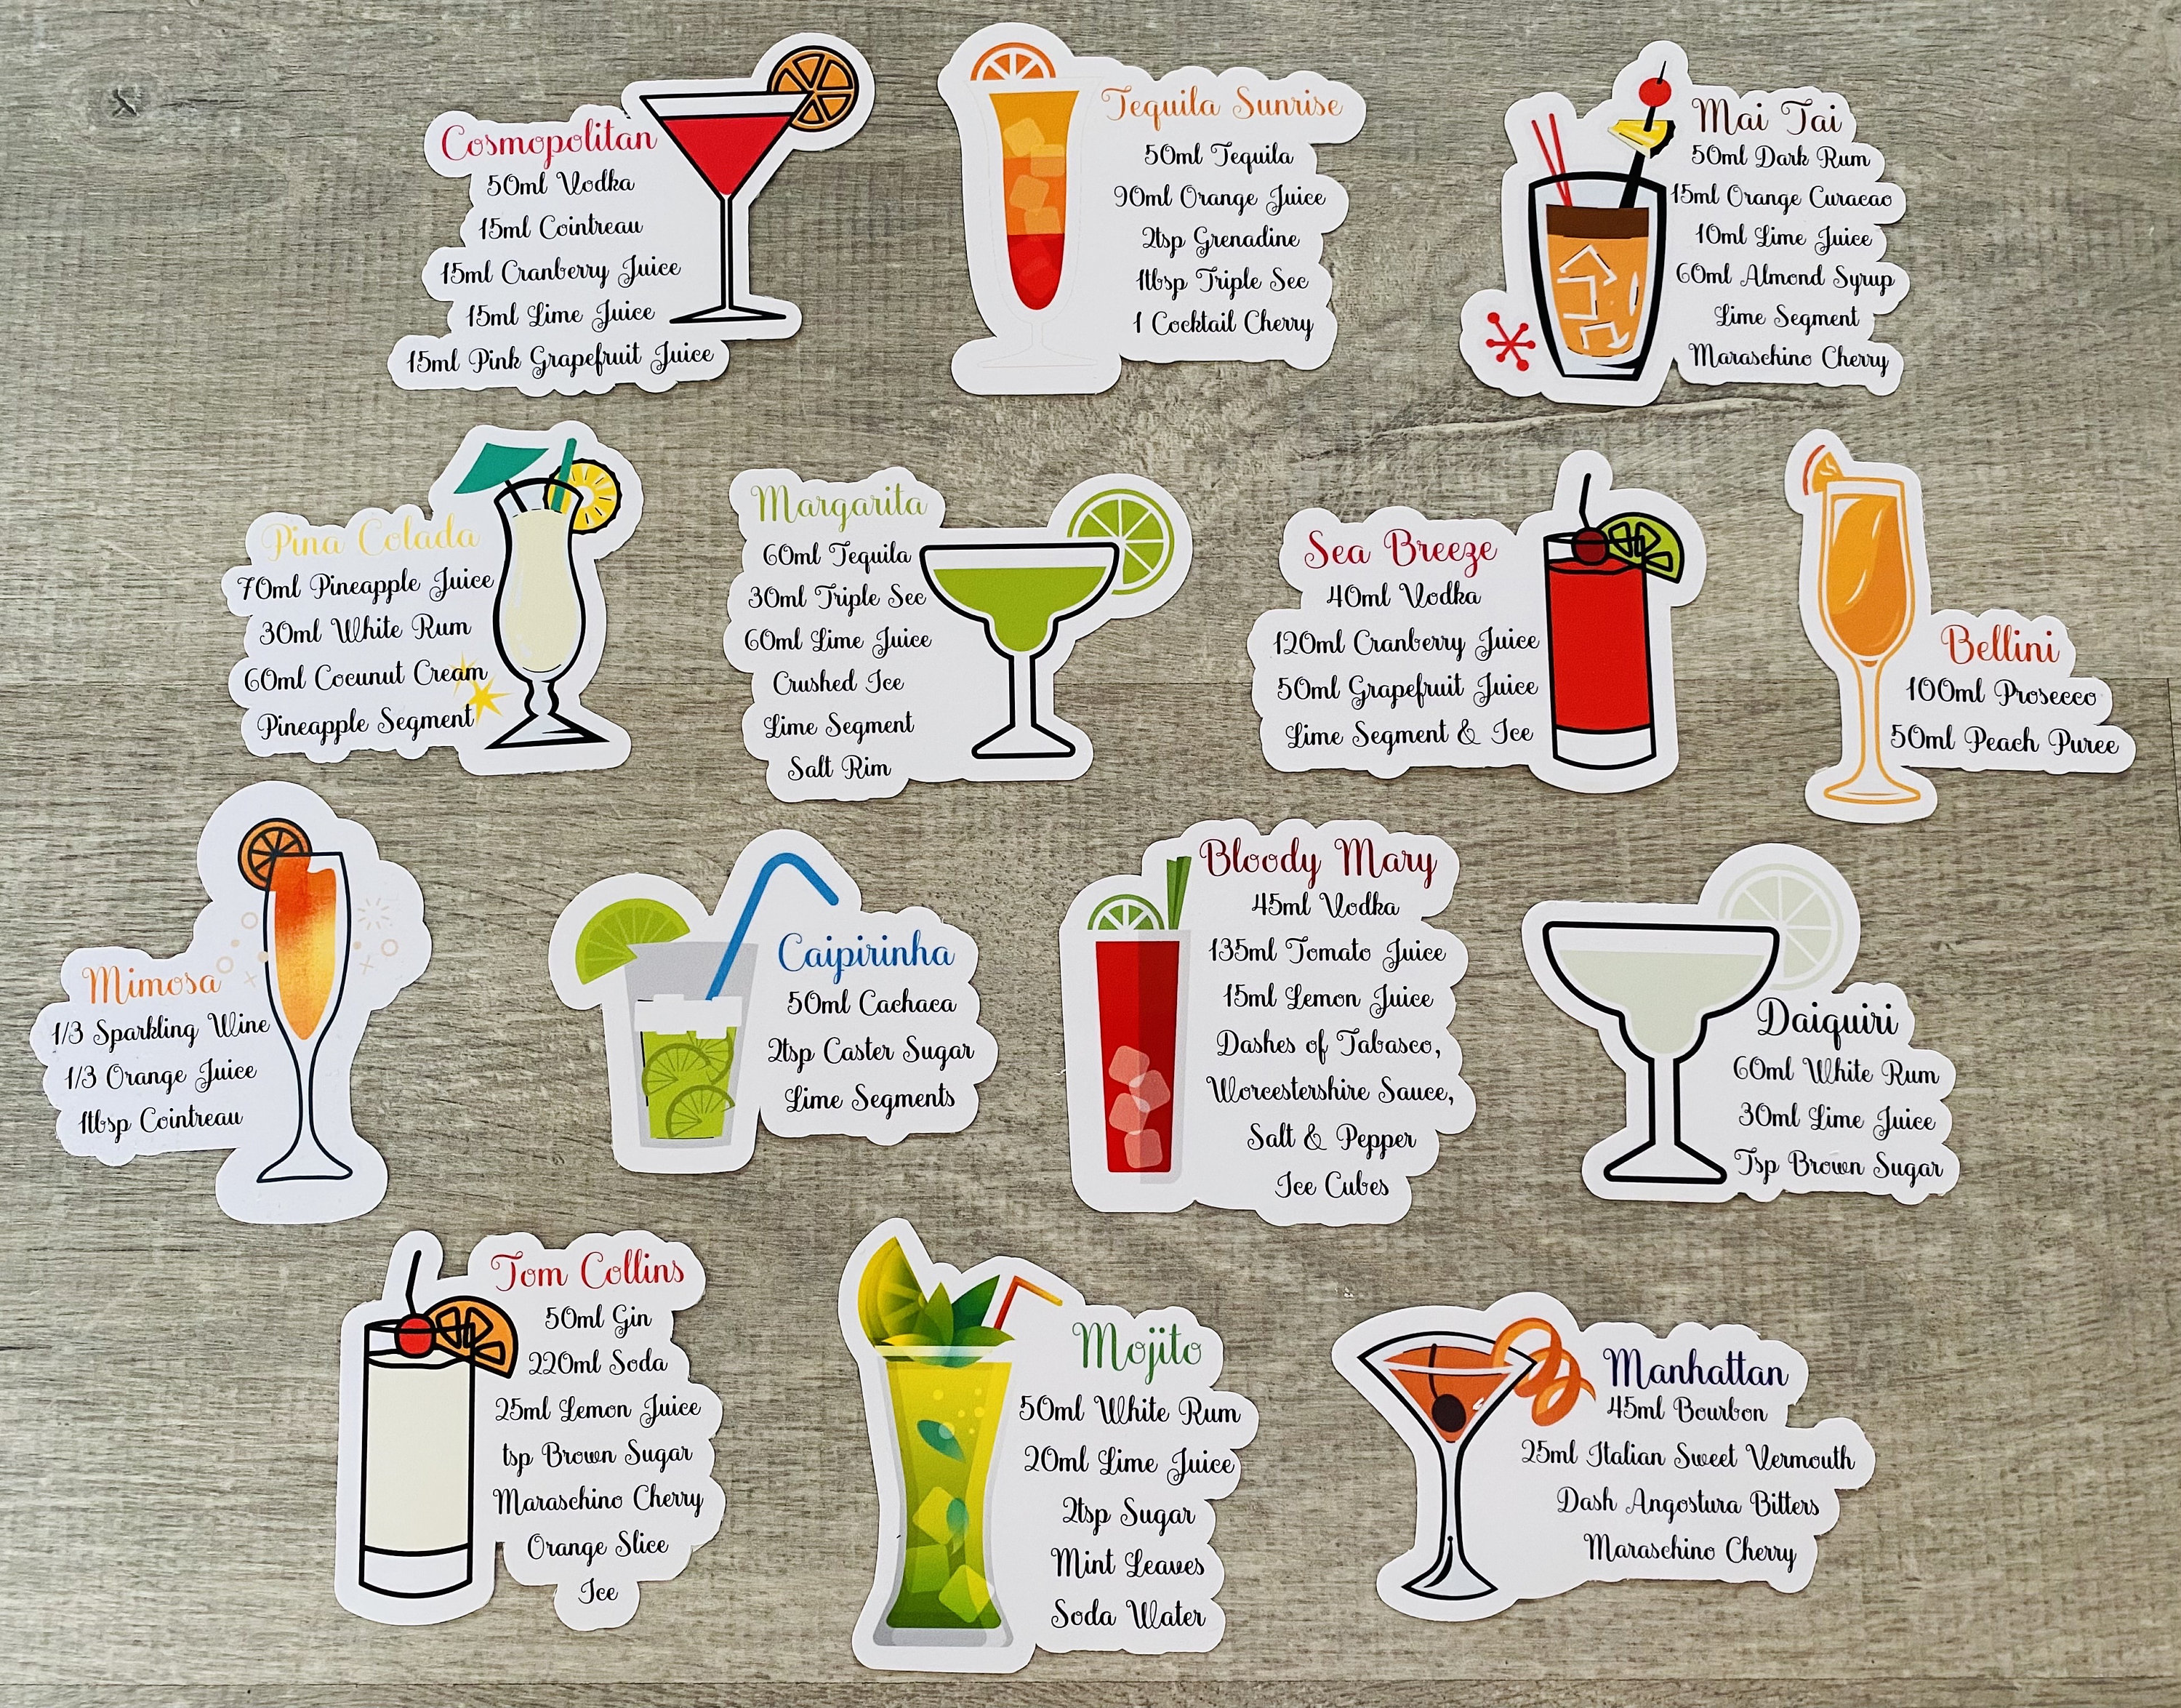 Cosmopolitan
50ml Vodka
15ml Cointreau
15ml Cranberry Juice
15ml Lime Juice
15ml Pink Grapefruit Juice
Tequila Sunrise
50ml Tequila
90ml Orange Juice
2tsp Grenadine
1tbsp Triple Sec
1 Cocktail Cherry
Mai Tai
50ml Dark Rum
15ml Orange Curacao
10ml Lime Juice
60ml Almond Syrup
Lime Segment
Maraschino Cherry
Pina Colada
70ml Pineapple Juice
30ml White Rum
60ml Cocunut Cream
Pineapple Segment
Margarita
60ml Tequila
30ml Triple Sec
60ml Lime Juice
Crushed Ice
Lime Segment
Salt Rim
Sea Breeze
40ml Vodka
120ml Cranberry Juice
50ml Grapefruit Juice
Lime Segment & Ice
Bellini
100ml Prosecco
50ml Peach Puree
Mimosa
1/3 Sparkling Wine
1/3 Orange Juice
1tbsp Cointreau
Caipirinha
50ml Cachaca
2tsp Caster Sugar
Lime Segments
Bloody Mary
45ml Vodka
135ml Tomato Juice
15ml Lemon Juice
Dashes of Tabasco,
Worcestershire Sauce,
Salt & Pepper
Ice Cubes
Daiquiri
60ml White Rum
30ml Lime Juice
Tsp Brown Sugar
Tom Collins
50ml Gin
220ml Soda
25ml Lemon Juice
tsp Brown Sugar
Maraschino Cherry
Orange Slice
Ice
Mojito
50ml White Rum
20ml Lime Juice
2tsp Sugar
Mint Leaves
Soda Water
Manhattan
45ml Bourbon
25ml Italian Sweet Vermouth
Dash Angostura Bitters
Maraschino Cherry